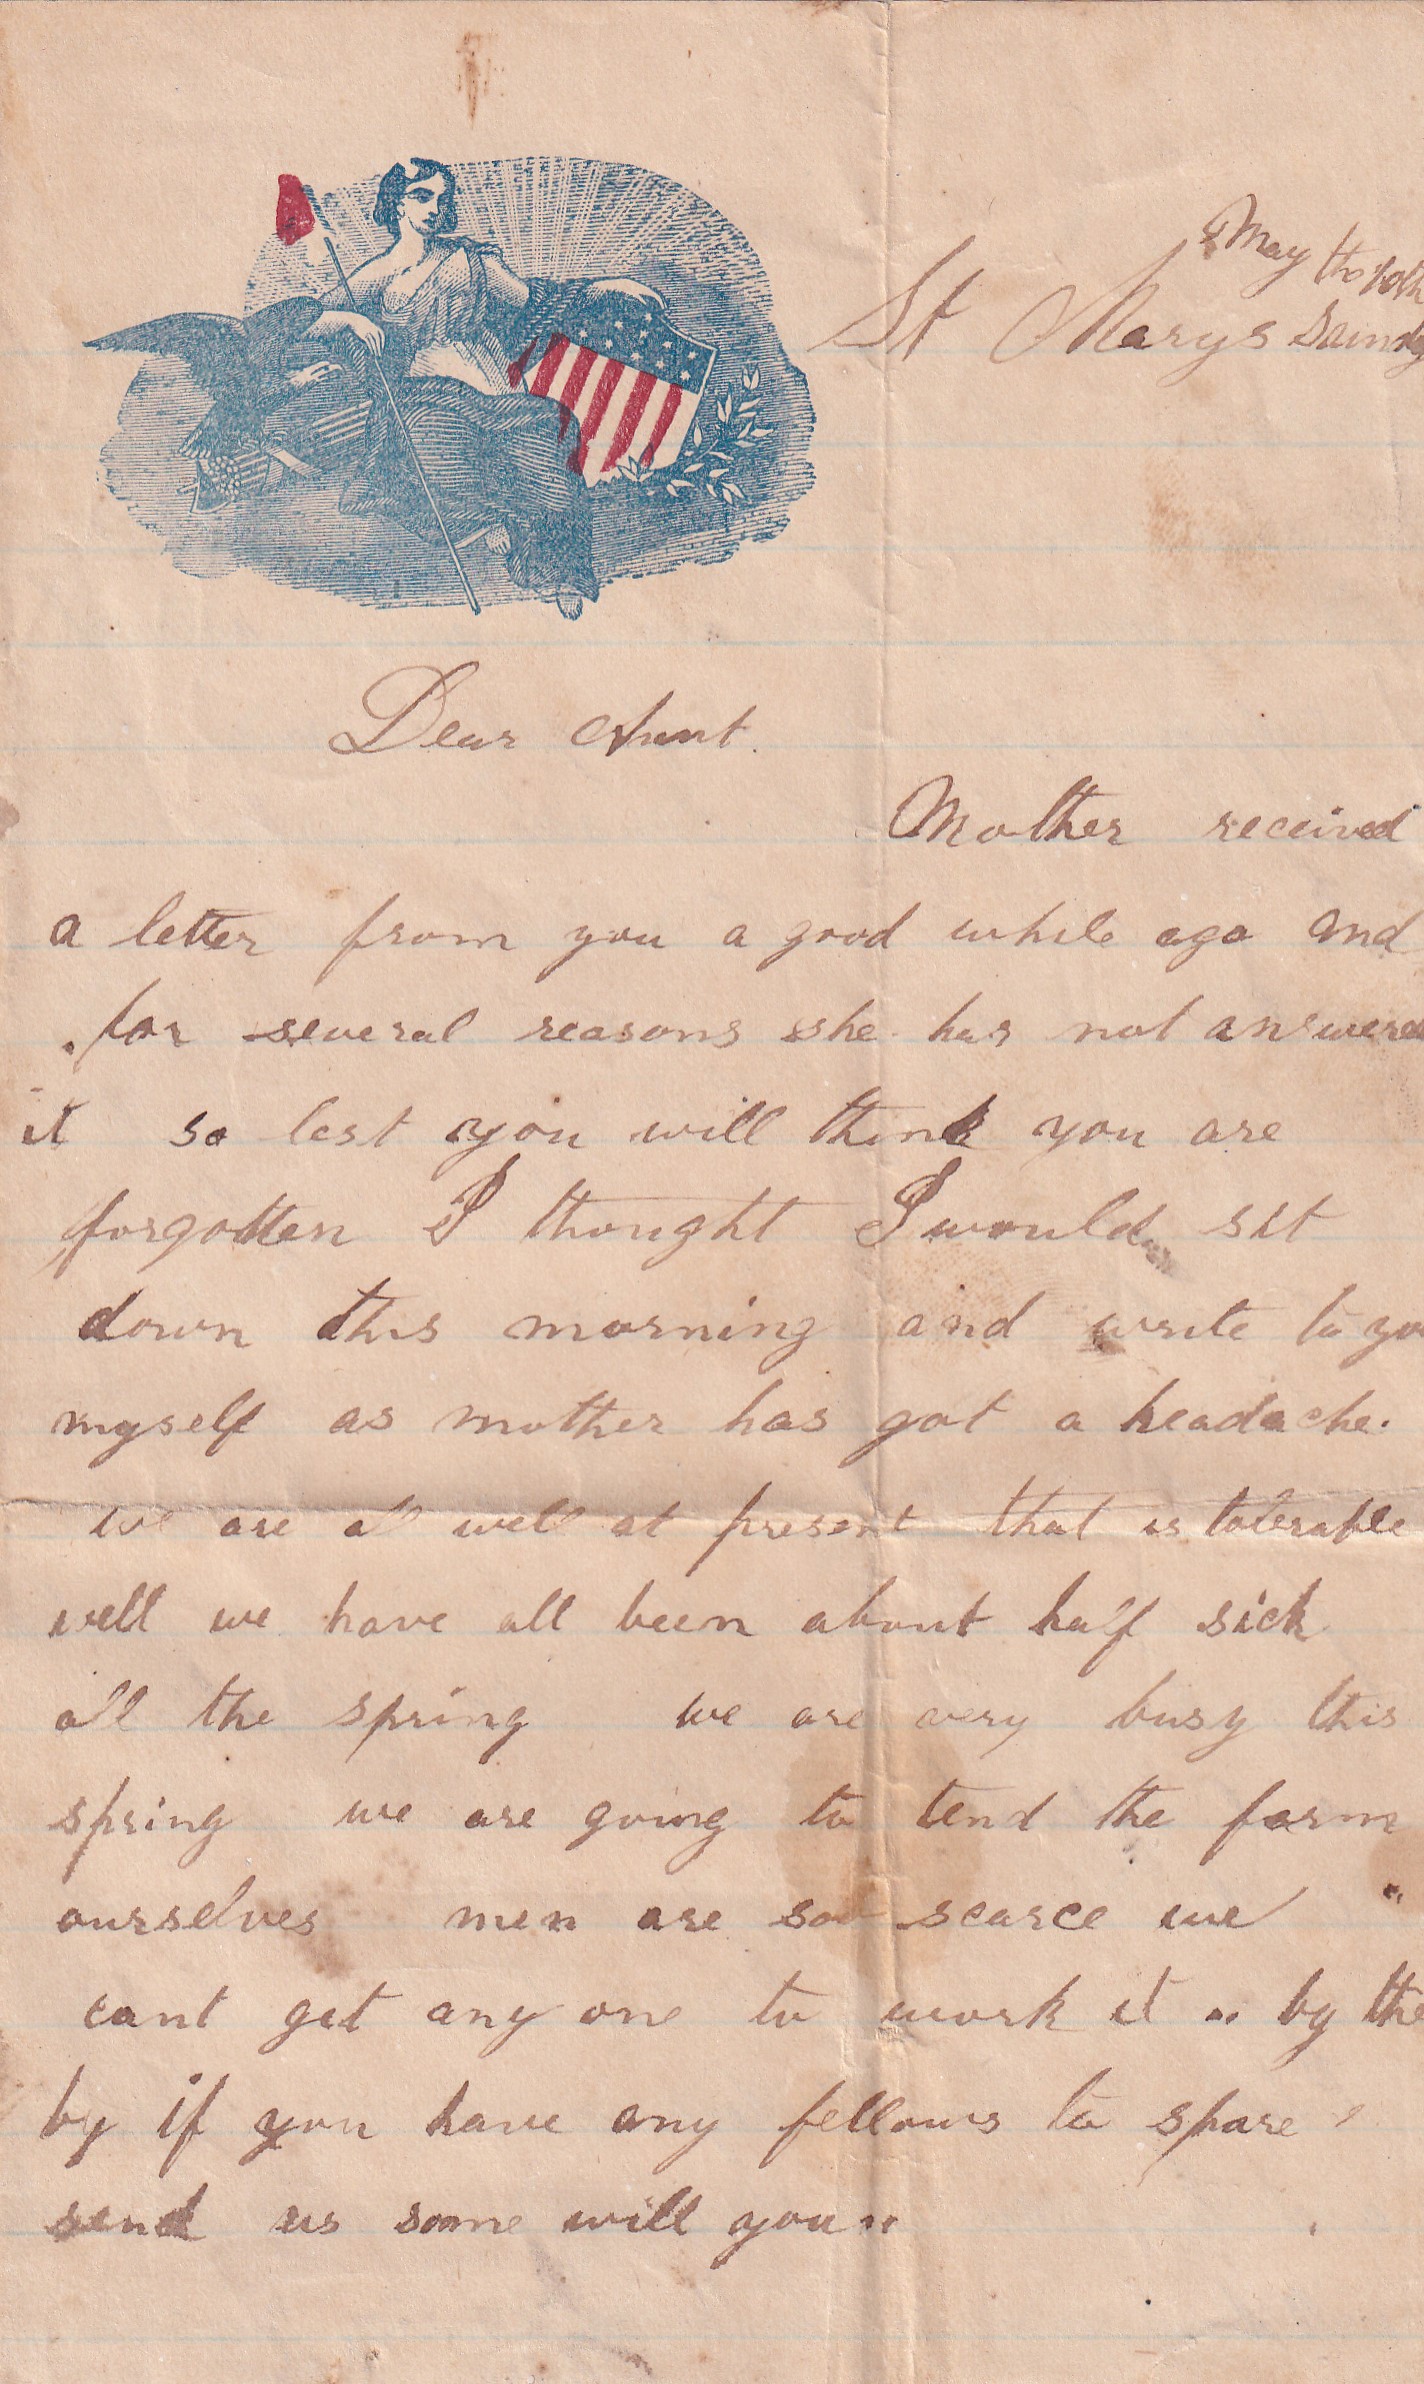 May the 10th
St Marys
Dear Aunt.
Mother received
a letter from you a good while ago and
for several reasons she has not answered
it so lest you will think you are
forgotten I thought I would sit
down this morning and write to you
myself as mother has got a headache.
we are all well at present that is tolerable
well we have all been about half sick
all the spring we are very busy this
spring we are going to tend the farm
ourselves men are so scarce we
cant get any one to work it .. by the
by if you have any fellows to spare
send us some will you..